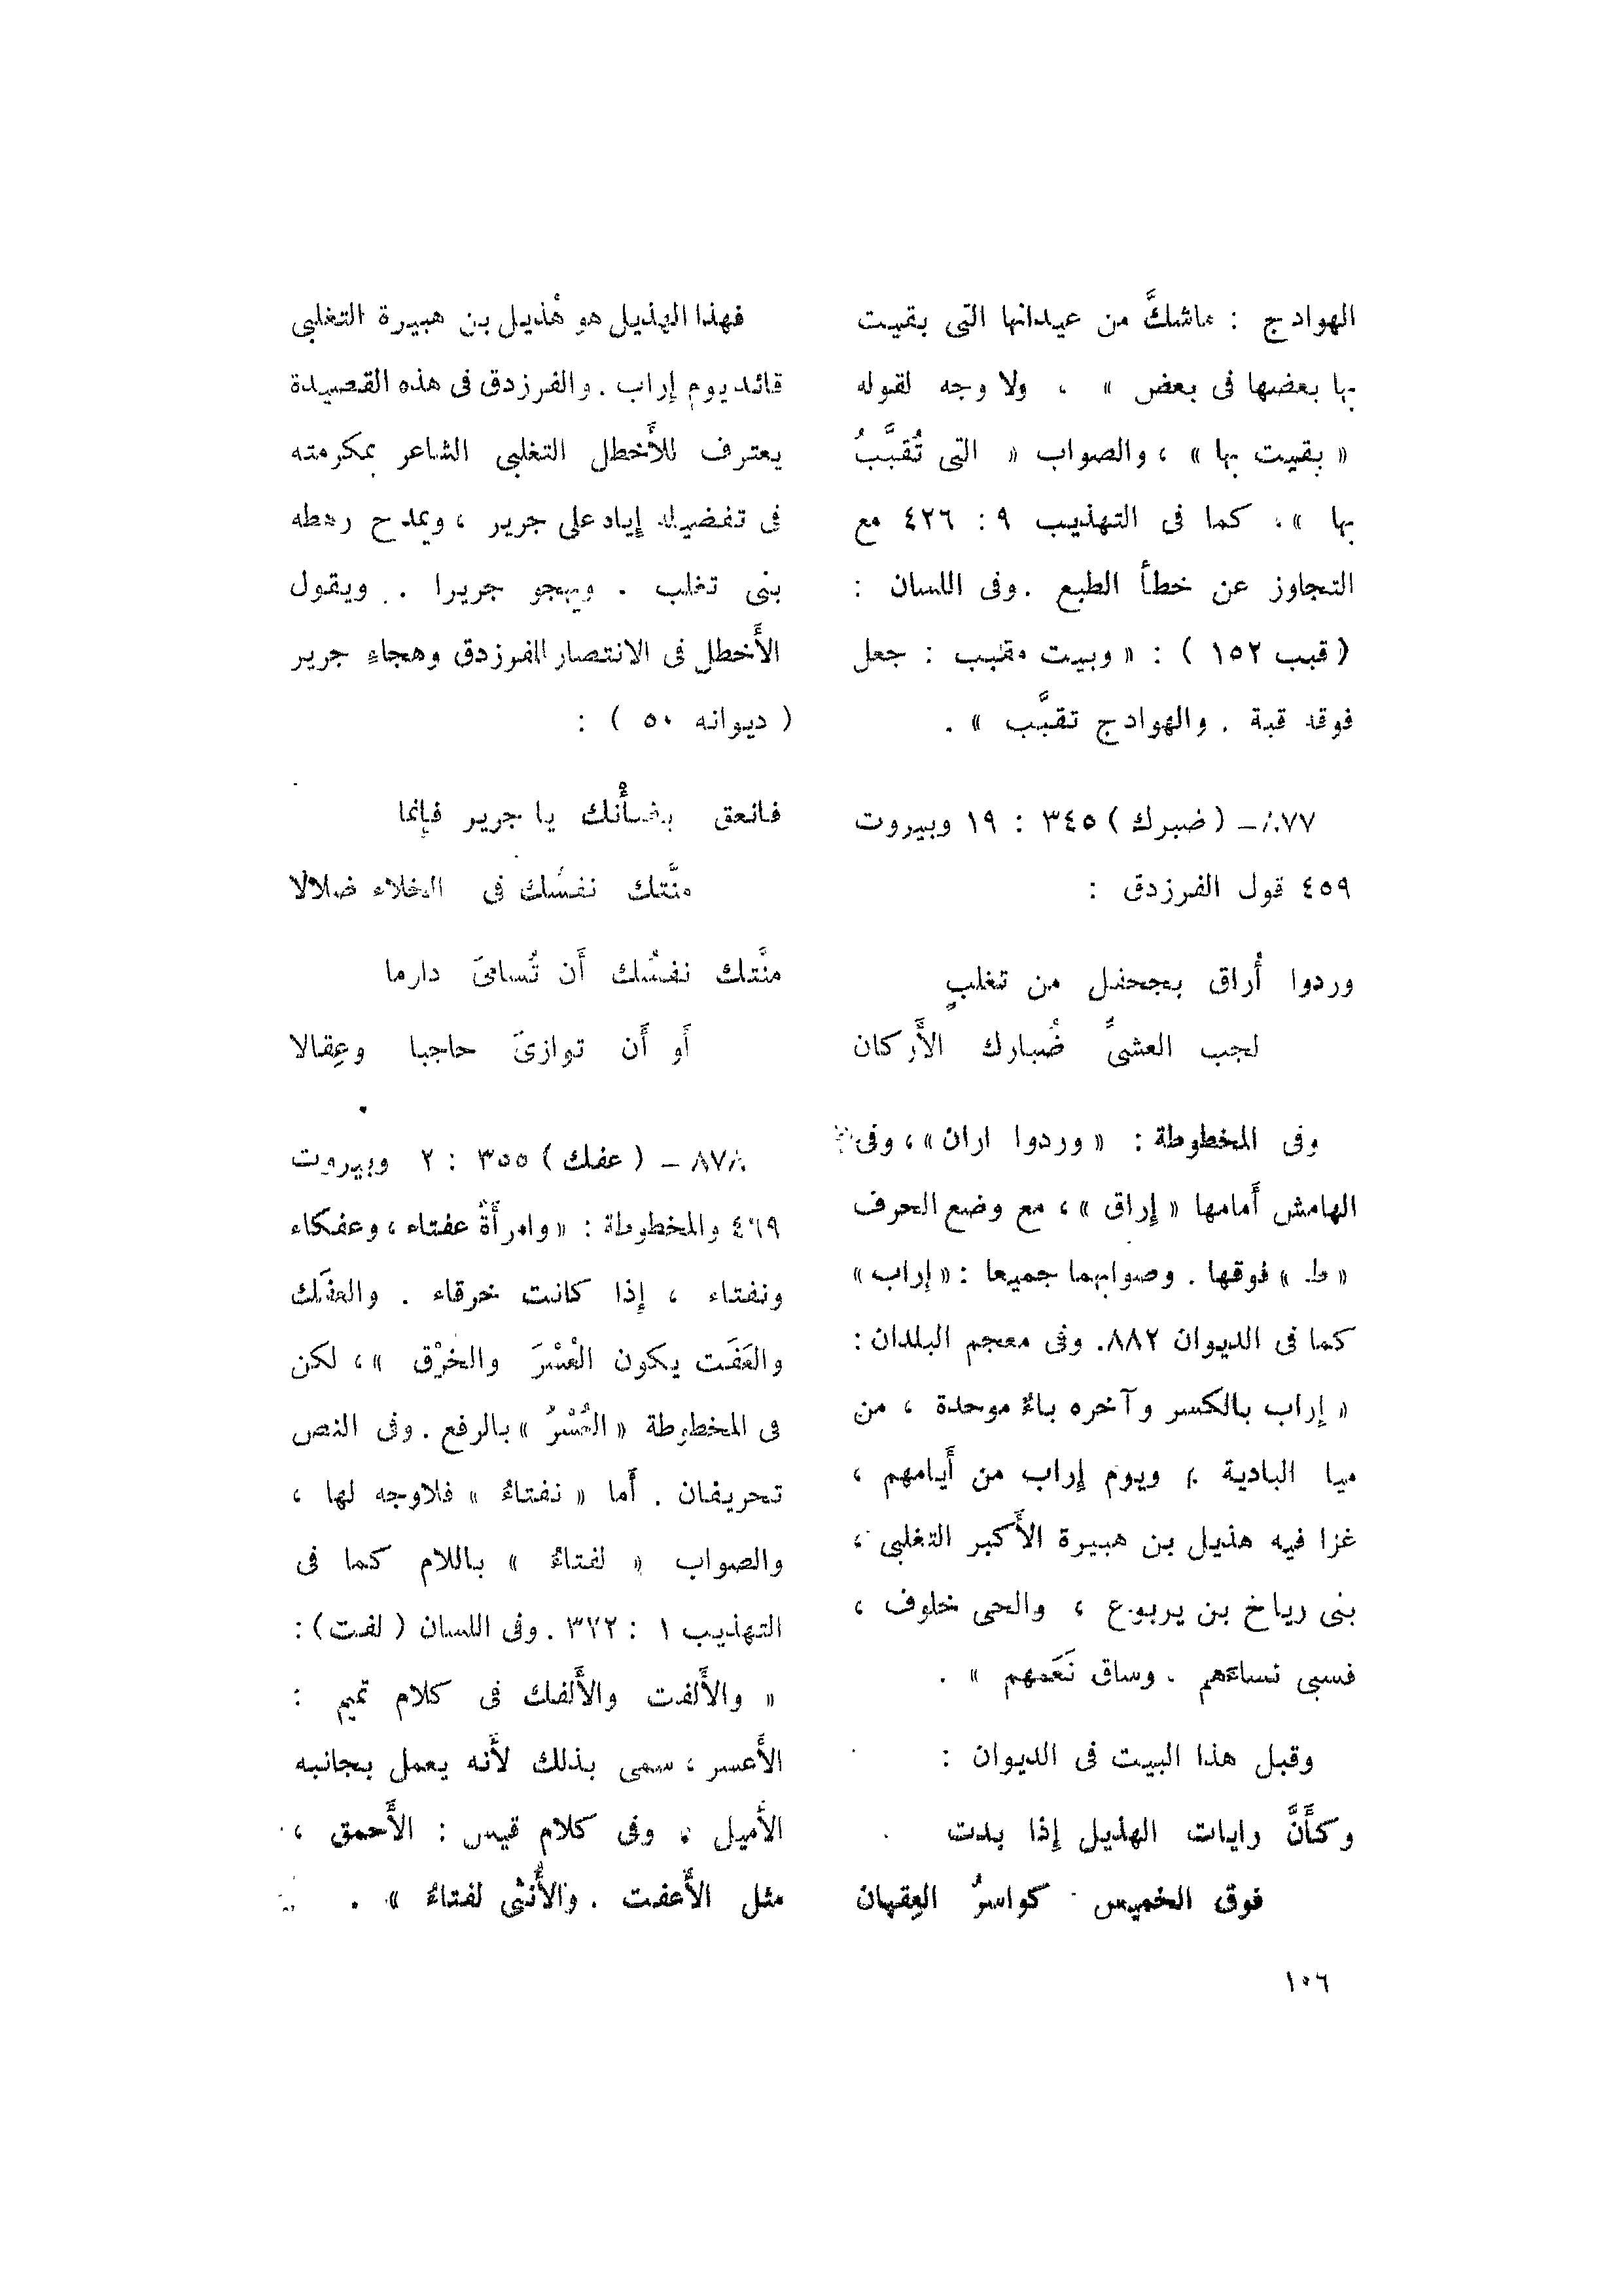 الهوادج : ماشكَّ من عيدانها التى بقيت
بها بعضها فى بعض » ، ولا وجه لقوله
« بقيت بها » ، والصواب « التى تُقبَّبُ
بها »، كما فى التهذيب ٩ : ٤٢٦ مع
التجاوز عن خطأ الطبع . وفى اللسان :
( قبب ١٥٢ ) : « وبيت مقبب : جعل
فوقه قبة . والهوادج تقبَّب » .
٨٧٧ـ ( ضبرك ) ٣٤٥ : ١٩ وبيروت
٤٥٩ قول الفرزدق :
وردوا أُراق بجحفل من تغلبٍ
لجب العشىِّ ضُبارك الأَركان
وفى المخطوطة : « وردوا اران » ، وفى
الهامش أَمامها « إراق » ، مع وضع الحرف
« ط » فوقها . وصوابهما جميعا : « إراب »
كما فى الديوان ٨٨٢. وفى معجم البلدان :
« إراب بالكسر وآخره باءٌ موحدة ، من
ميا البادية . ويوم إراب من أَيامهم ،
غزا فيه هذيل بن هبيرة الأَكبر التغلبى ،
بنى رياخ بن يربوع ، والحى خلوف ،
فسبى نساءَهم . وساق نَعَمهم » .
وقبل هذا البيت فى الديوان :
وكأَنَّ رايات الهذيل إذا بدت
فوق الخميس كواسرُ العِقبان
فهذا الهذيل هو هُذيل بن هبيرة التغلبى
قائد يوم إراب . والفرزدق فى هذه القصيدة
يعترف للأَخطل التغلبى الشاعر بمكرمته
فى تفضيله إياه على جرير ، ويمدح رهطه
بنى تغلب . ويهجو جريرا . ويقول
الأَخطل فى الانتصار للفرزدق وهجاءِ جرير
( ديوانه ٥٠ ) :
فانعق بضأْنك يا جرير فإنما
منَّتك نفسُك فى الخلاء ضلالا
منَّتك نفسُك أَن تُسامىَ دارما
أَو أَن توازىَ حاجبا وعِقالا
٨٧٨ ـ ( عفك ) ٣٥٥ : ٢ وبيروت
٤٦٩ والمخطوطة : « وامرأَةٌ عفتاء ، وعفكاء
ونفتاء ، إذا كانت خرقاء . والعفَك
والعَفَت يكون العُسْرَ والخرْق » ، لكن
فى المخطوطة « العُسْرُ » بالرفع . وفى النص
تحريفان . أَما « نفتاءُ » فلاوجه لها ،
والصواب « لفتاءُ » باللام كما فى
التهذيب ١ : ٣٢٢ . وفى اللسان ( لفت ) :
« والأَلفت والأَلفك فى كلام تميم :
الأَعسر ، سمى بذلك لأَنه يعمل بجانبه
الأَميل ، وفى كلام قيس : الأَحمق ،
مثل الأَعفت . والأُنثى لفتاءُ » .
١٠٦